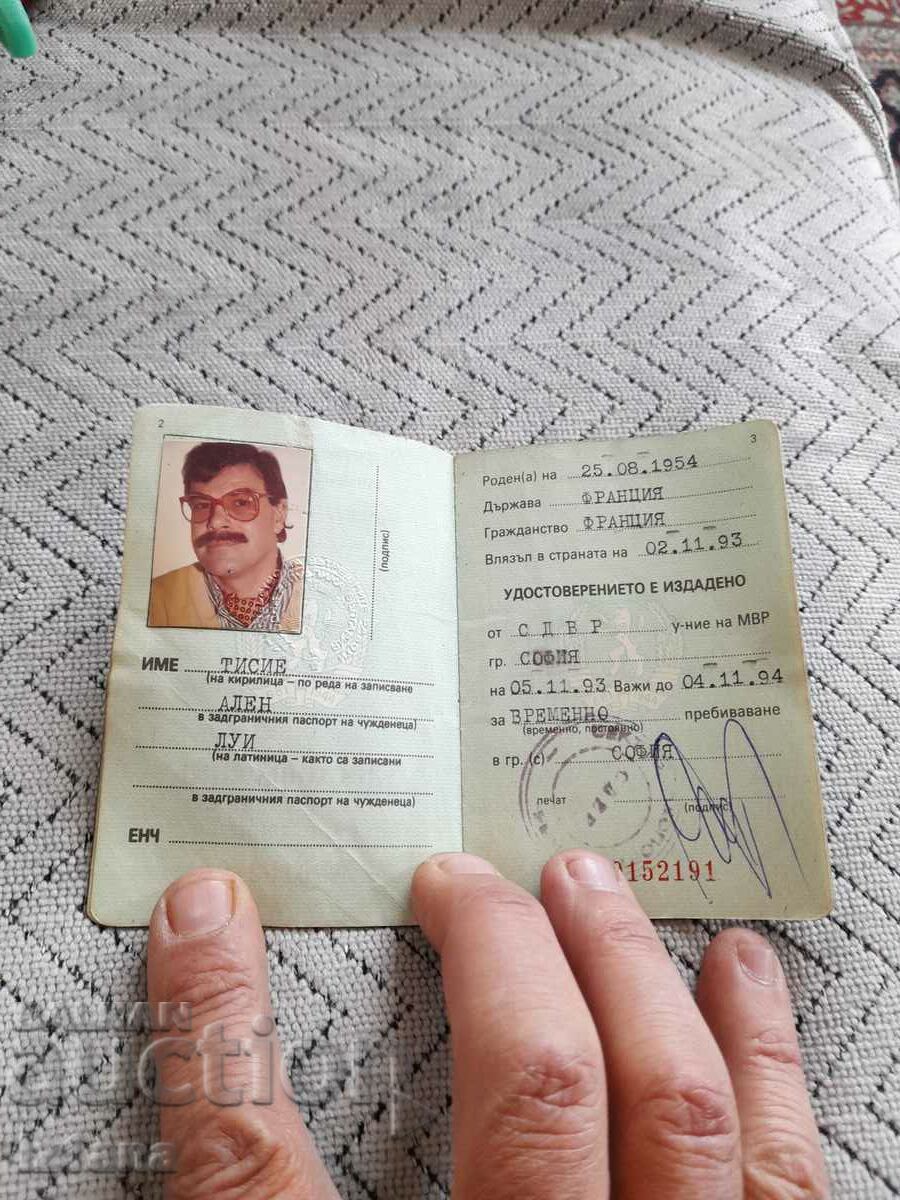 2
(подпис)
ИМЕ ТИСИЕ
(на кирилица – по реда на записване
АЛЕН
в задграничния паспорт на чужденеца)
ЛУИ
(на латиница – както са записани
в задграничния паспорт на чужденеца)
ЕНЧ
3
Роден(а) на 25.08.1954
Държава ФРАНЦИЯ
Гражданство ФРАНЦИЯ
Влязъл в страната на 02.11.93
УДОСТОВЕРЕНИЕТО Е ИЗДАДЕНО
от СДВР у-ние на МВР
гр. СОФИЯ
на 05.11.93 Важи до 04.11.94
за ВРЕМЕННО пребиваване
(временно, постоянно)
в гр. (с) СОФИЯ
печат (подпис)
152191
БАЛКАН
auction